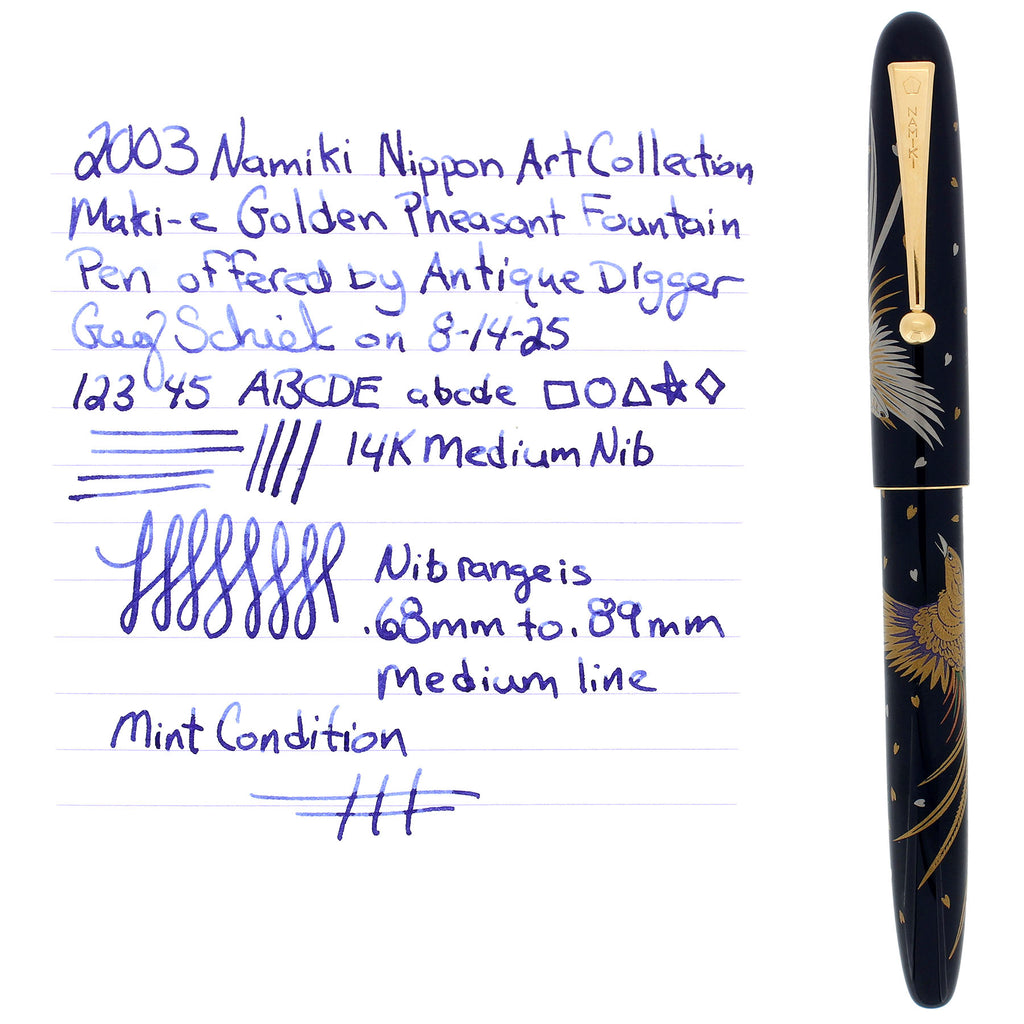 2003 Namiki Nippon Art Collection
Maki-e Golden Pheasant Fountain
Pen offered by Antique Digger
Greg Schiek on 8-14-25
123 45 ABCDE abcde
14K Medium Nib
Nib range is
.68mm to .89mm
medium line
Mint Condition
NAMIKI